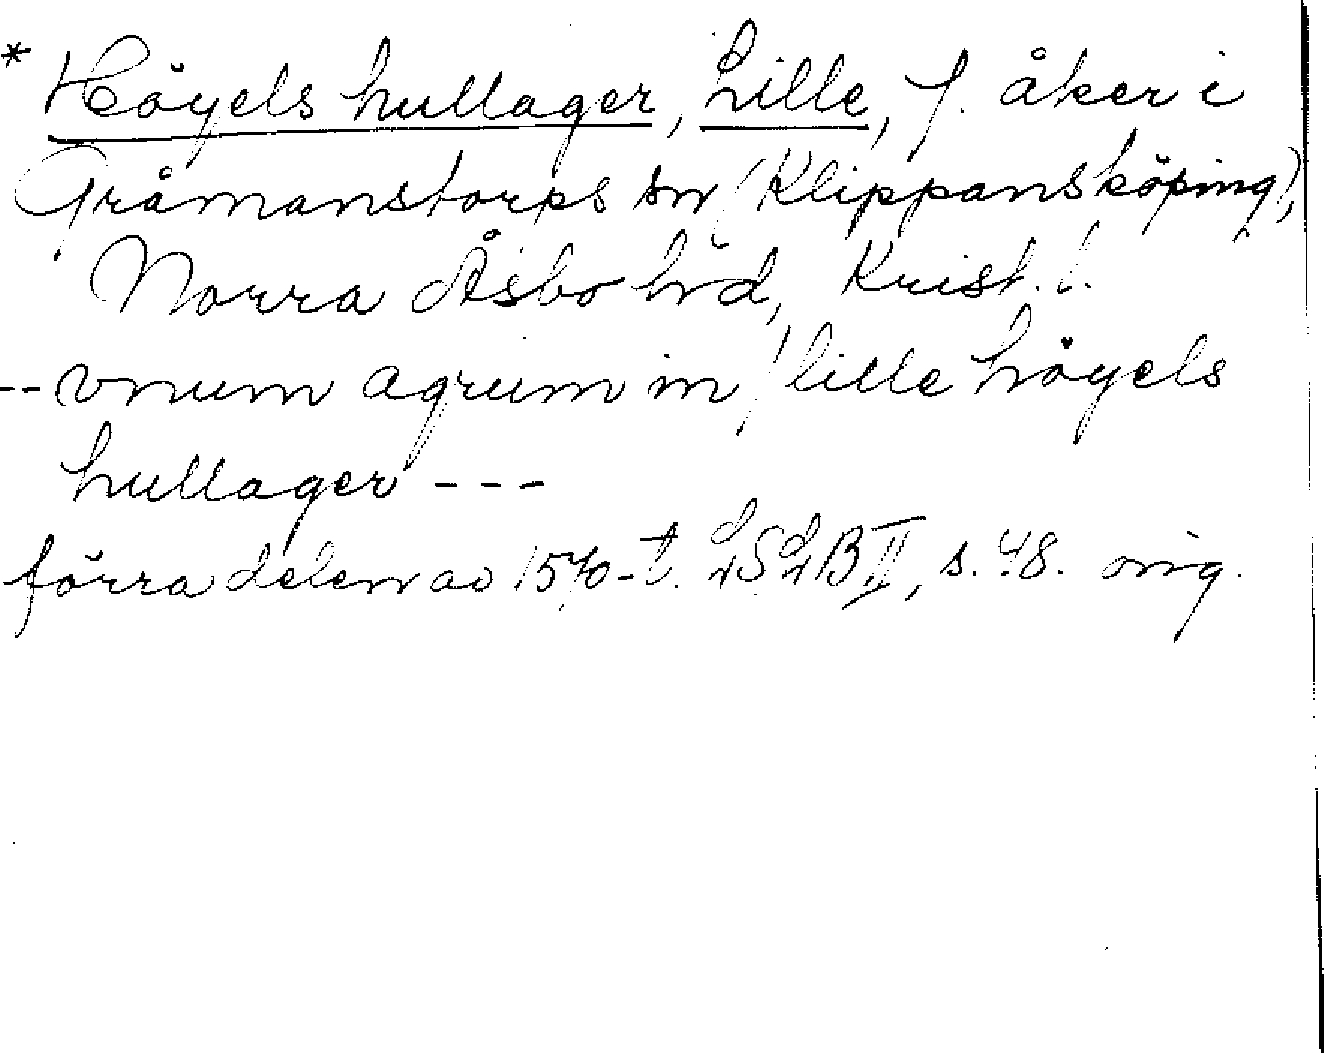 * Höyels hullager, Lille, f. åker i
Gråmanstorps sn (Klippans köping),
Norra Åsbo hd, Krist. l.
-- vnum agrum in / lille höyels
hullager ---
förra delen av 1570-t. LSLB II, s. 48. orig.